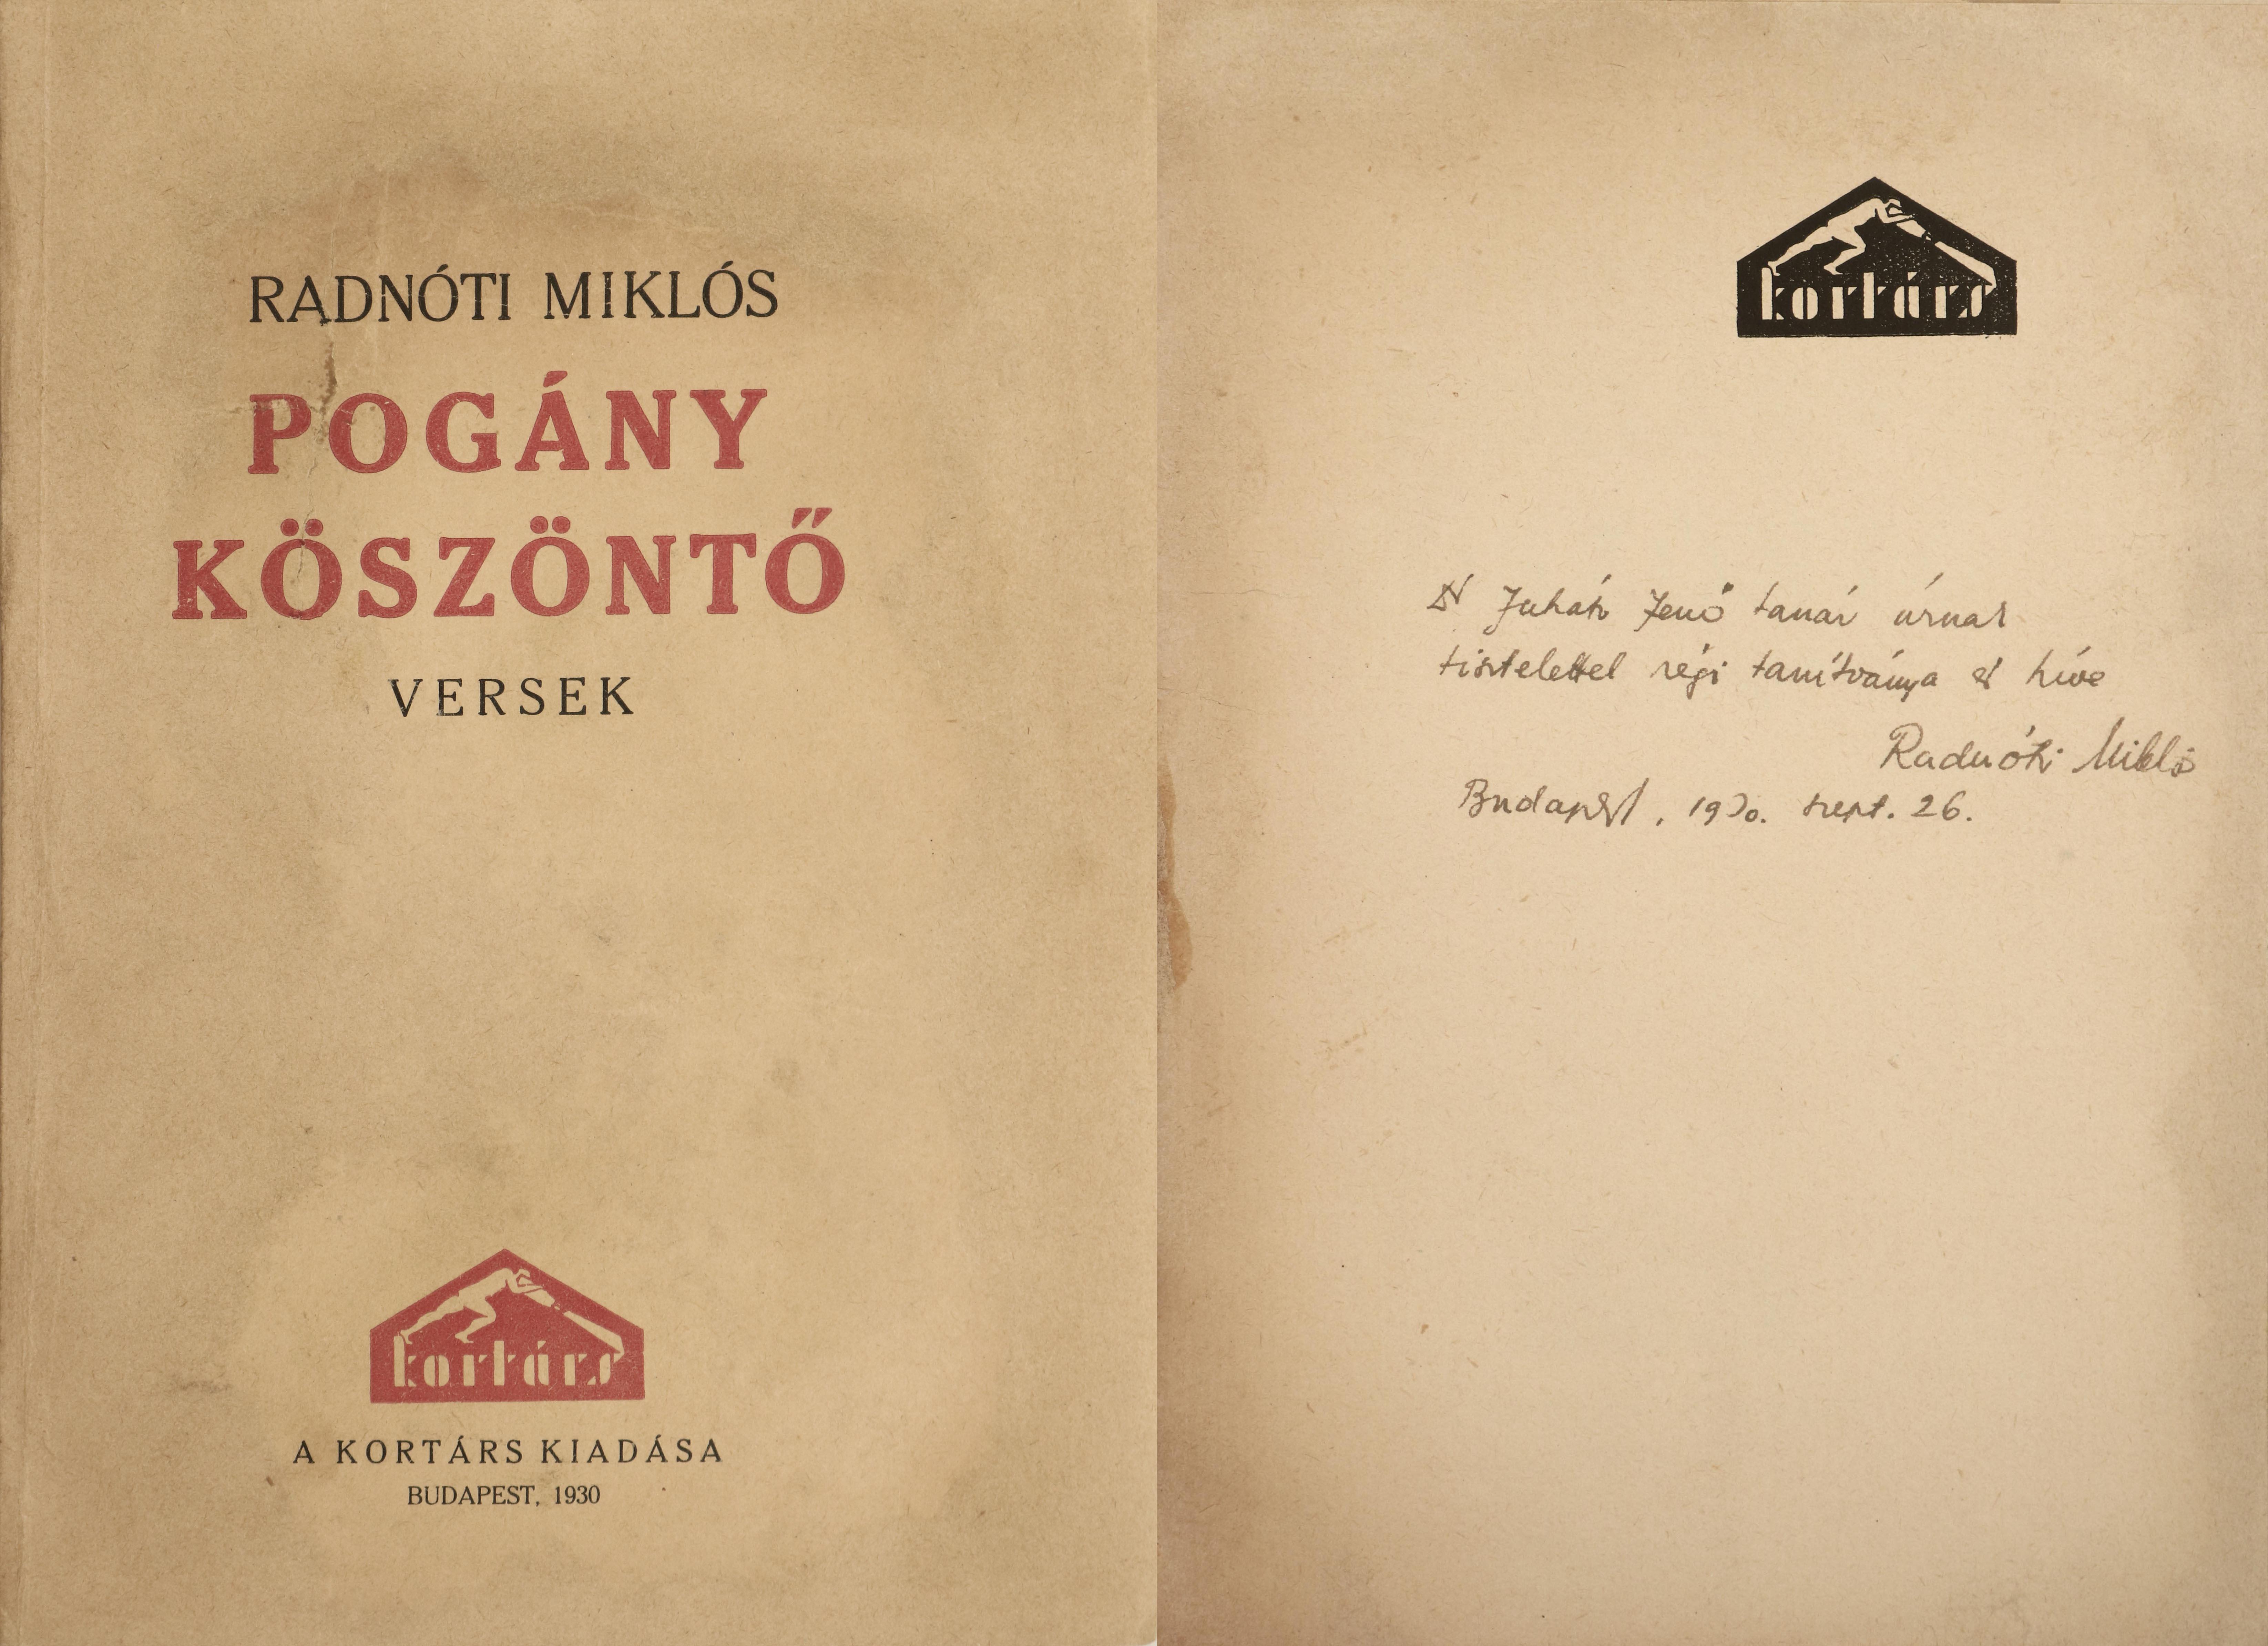 RADNÓTI MIKLÓS
POGÁNY
KÖSZÖNTŐ
VERSEK
kortárs
A KORTÁRS KIADÁSA
BUDAPEST, 1930
kortárs
Dr Juhász Jenő tanár úrnak
tisztelettel régi tanítványa és híve
Radnóti Miklós
Budapest, 1930. szept. 26.